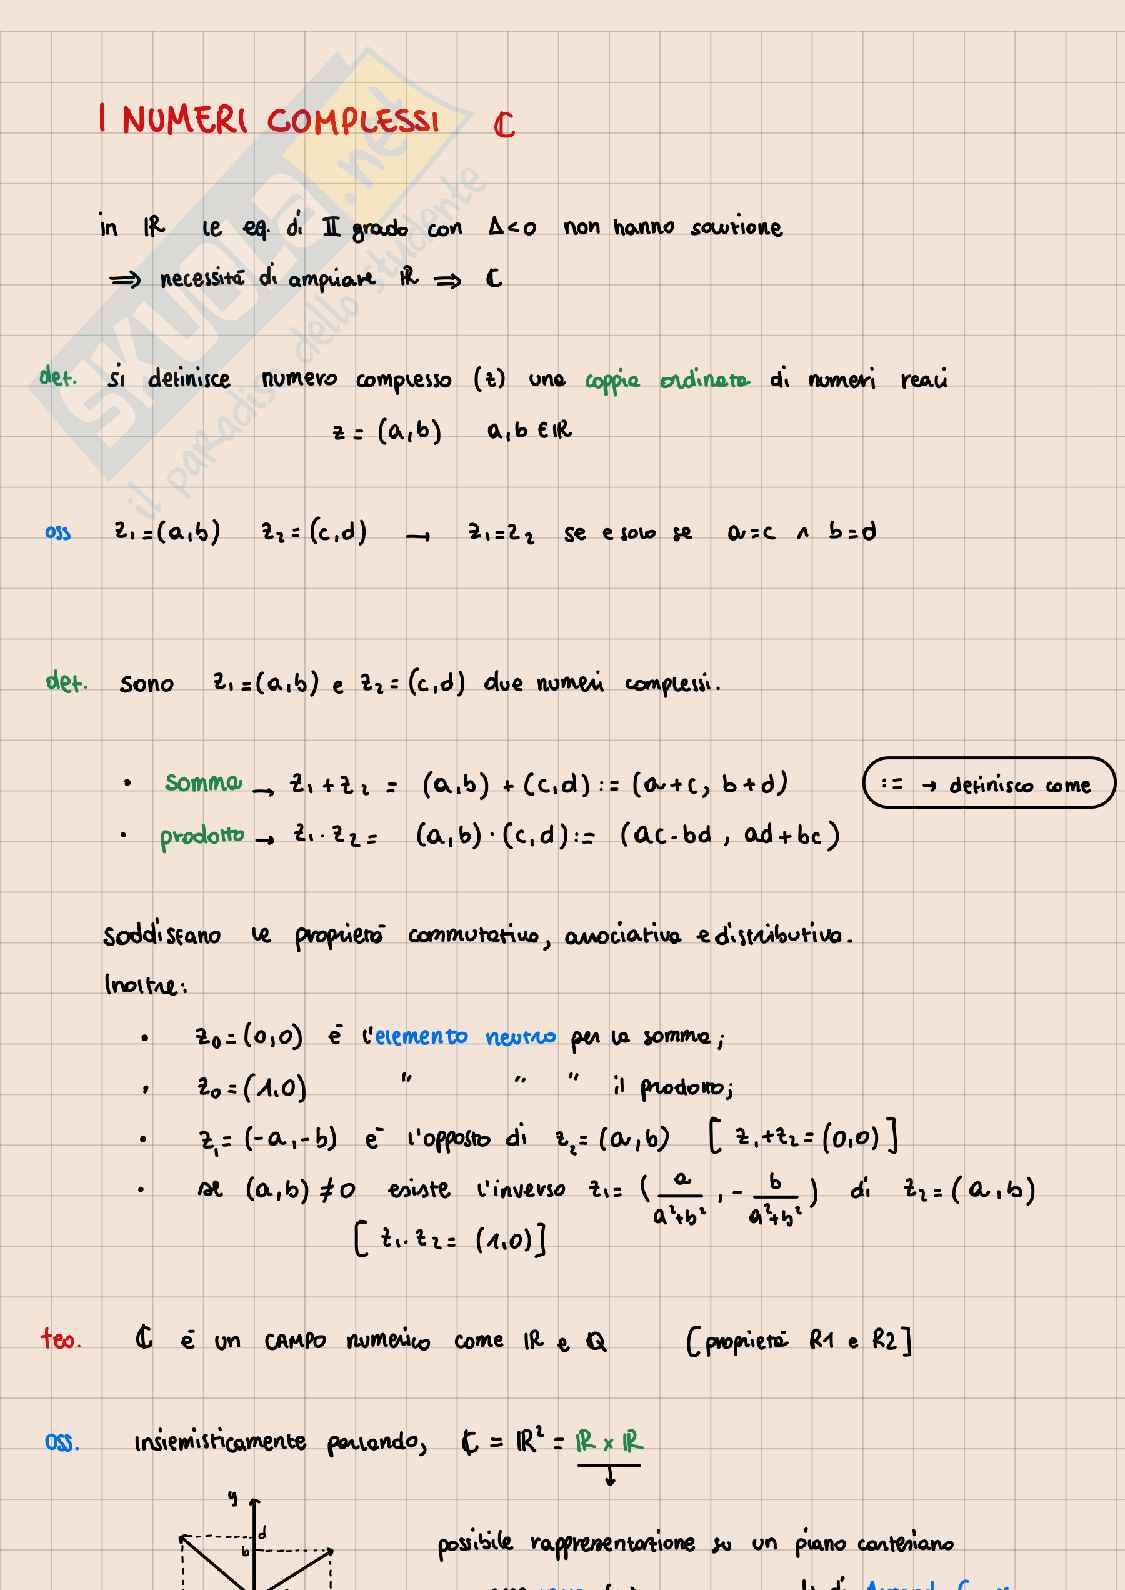 I NUMERI COMPLESSI ℂ
in ℝ le eq. di II grado con Δ<0 non hanno soluzione
⟹ necessità di ampliare ℝ ⟹ ℂ
def. si definisce numero complesso (z) una coppia ordinata di numeri reali
z = (a,b) a,b ∈ ℝ
oss z₁=(a,b) z₂=(c,d) → z₁=z₂ se e solo se a=c ∧ b=d
def. sono z₁=(a,b) e z₂=(c,d) due numeri complessi.
• somma → z₁+z₂ = (a,b)+(c,d) := (a+c, b+d)
:= → definisco come
• prodotto → z₁·z₂ = (a,b)·(c,d) := (ac-bd, ad+bc)
soddisfano le proprietà commutativa, associativa e distributiva.
Inoltre:
• z₀=(0,0) è l'elemento neutro per la somma;
• z₀=(1,0) " " " il prodotto;
• z₁=(-a,-b) è l'opposto di z₂=(a,b) [z₁+z₂=(0,0)]
• se (a,b)≠0 esiste l'inverso z₁=(a/(a²+b²), -b/(a²+b²)) di z₂=(a,b)
[z₁·z₂=(1,0)]
teo. ℂ è un CAMPO numerico come ℝ e ℚ [proprietà R1 e R2]
oss. insiemisticamente parlando, ℂ = ℝ² = ℝ × ℝ
y
d
b
possibile rappresentazione su un piano cartesiano
SKUOLA.net
il paradiso dello studente